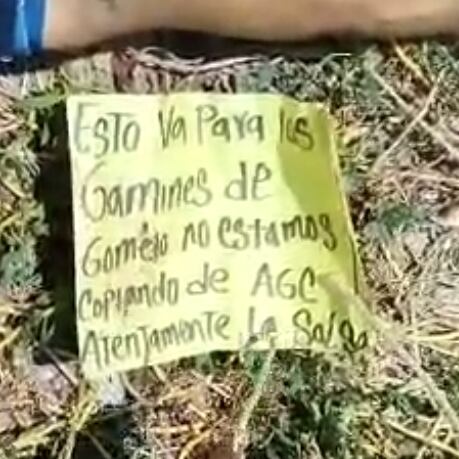 Esto va para los
Gamines de
Gomelo no estamos
copiando de AGC
Atentamente La Salsa